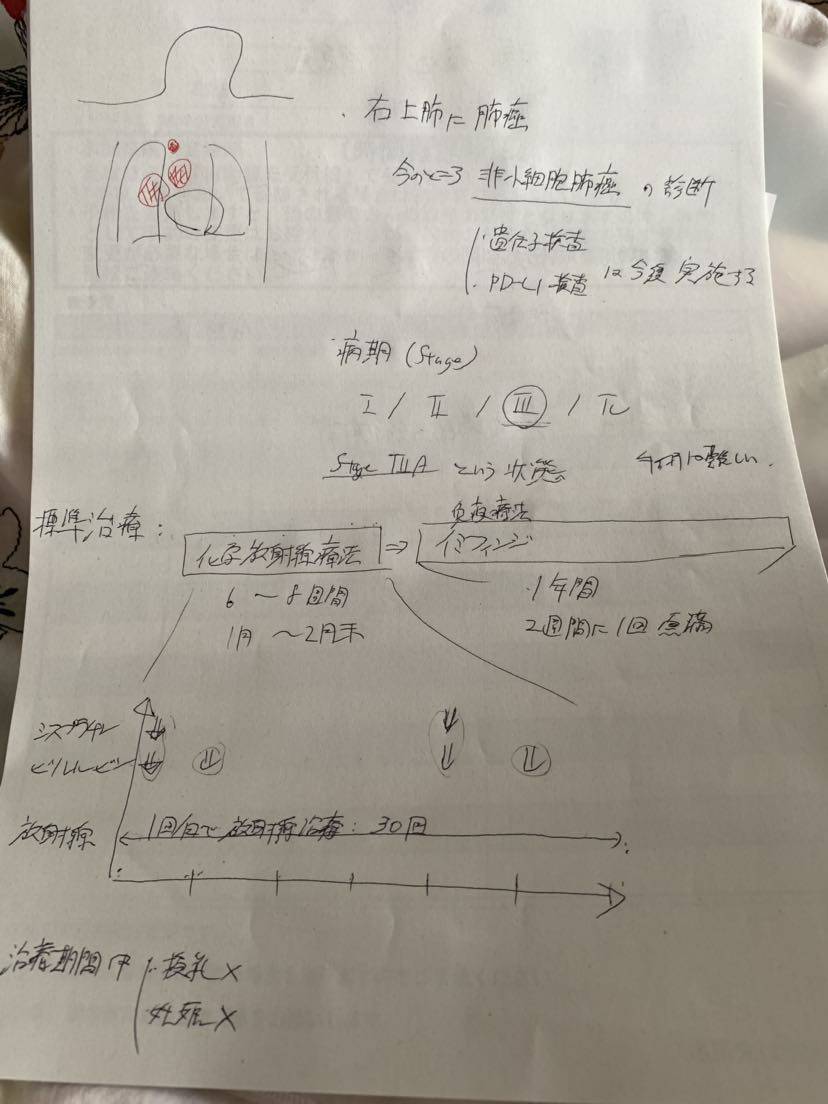 ・右上肺に肺癌
今のところ 非小細胞肺癌 の診断
・遺伝子検査
・PD-L1検査 は今後実施する
病期 (Stage)
I / II / III / IV
Stage IIIA という状態 手術は難しい.
標準治療:
免疫療法
化学放射線療法 ⇒ イミフィンジ
6〜8週間
1月〜2月末
・1年間
2週間に1回 点滴
シスプラチン
ビノレルビン
放射線 1回/日で放射線治療: 30回
治療期間中
・授乳×
・妊娠×